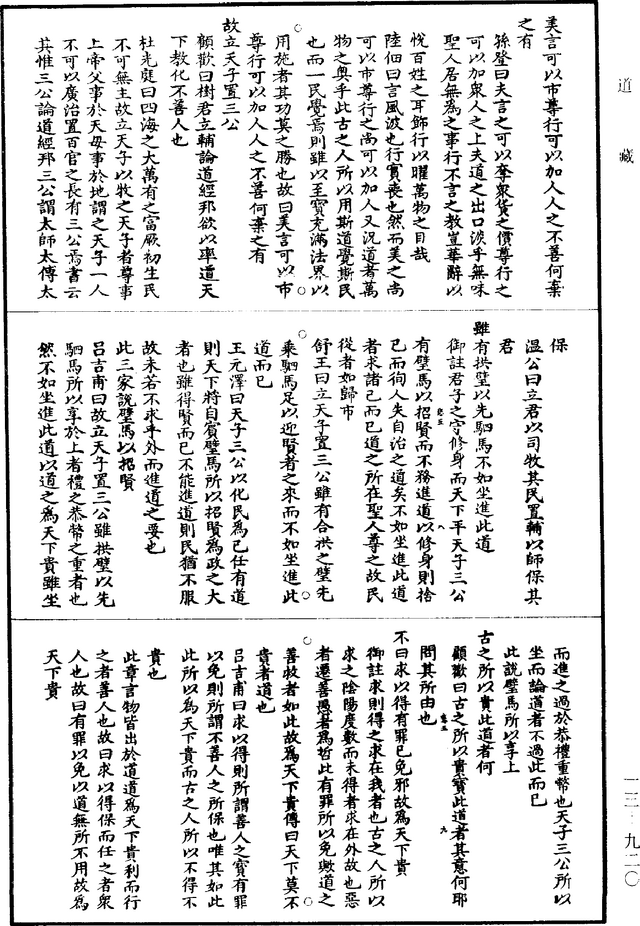 道藏
美言可以市尊行可以加人人之不善何棄
之有
孫登曰夫言之可以奪衆貨之價尊行之
可以加衆人之上夫道之出口淡乎無味
聖人居無為之事行不言之教豈華辭以
悅百姓之耳飾行以曜萬物之目哉
陸佃曰言風波也行實喪也然而美之尚
可以市尊行之尚可以加人又況道者萬
物之奥乎此古之人所以用斯道覺斯民
也而一民覺焉則雖以至寶充滿法界以
用施者其功莫之勝也故曰美言可以市
尊行可以加人人之不善何棄之有
故立天子置三公
顧歡曰樹君立輔論道經邦欲以率道天
下教化不善人也
杜光庭曰四海之大萬有之富厥初生民
不可無主故立天子以牧之天子者尊事
上帝父事於天母事於地謂之天子一人
不可以廣治置百官之長有三公焉書云
其惟三公論道經邦三公謂太師太傅太
保
溫公曰立君以司牧其民置輔以師保其
君
雖有拱璧以先駟馬不如坐進此道
御註君子之守修身而天下平天子三公
有璧馬以招賢而不務進道以修身則捨
己而徇人失自治之道矣不如坐進此道
者求諸己而已道之所在聖人尊之故民
從者如歸市
舒王曰立天子置三公雖有合拱之璧先
乘駟馬足以迎賢者之來而不如坐進此
道而已
王元澤曰天子三公以化民為己任有道
則天下將自賓璧馬所以招賢為政之大
者也雖得賢而己不能進道則民猶不服
故未若不求乎外而進道之要也
此三家說璧馬以招賢
呂吉甫曰故立天子置三公雖拱璧以先
駟馬所以享於上者禮之恭幣之重者也
然不如坐進此道以道之為天下貴雖坐
而進之過於恭禮重幣也天子三公所以
坐而論道者不過此而已
此說璧馬所以享上
古之所以貴此道者何
顧歡曰古之所以貴寶此道者其意何耶
問其所由也
不曰求以得有罪已免邪故為天下貴
御註求則得之求在我者也古之人所以
求之陰陽度數而未得者求在外故也惡
者遷善愚者為哲此有罪所以免歟道之
善救者如此故為天下貴傳曰天下莫不
貴者道也
呂吉甫曰求以得則所謂善人之寶有罪
以免則所謂不善人之所保也唯其如此
此所以為天下貴而古之人所以不得不
貴也
此章言物皆出於道道為天下貴利而行
之者善人也故曰求以得保而任之者衆
人也故曰有罪以免以道無所不用故為
天下貴
一三·九二〇